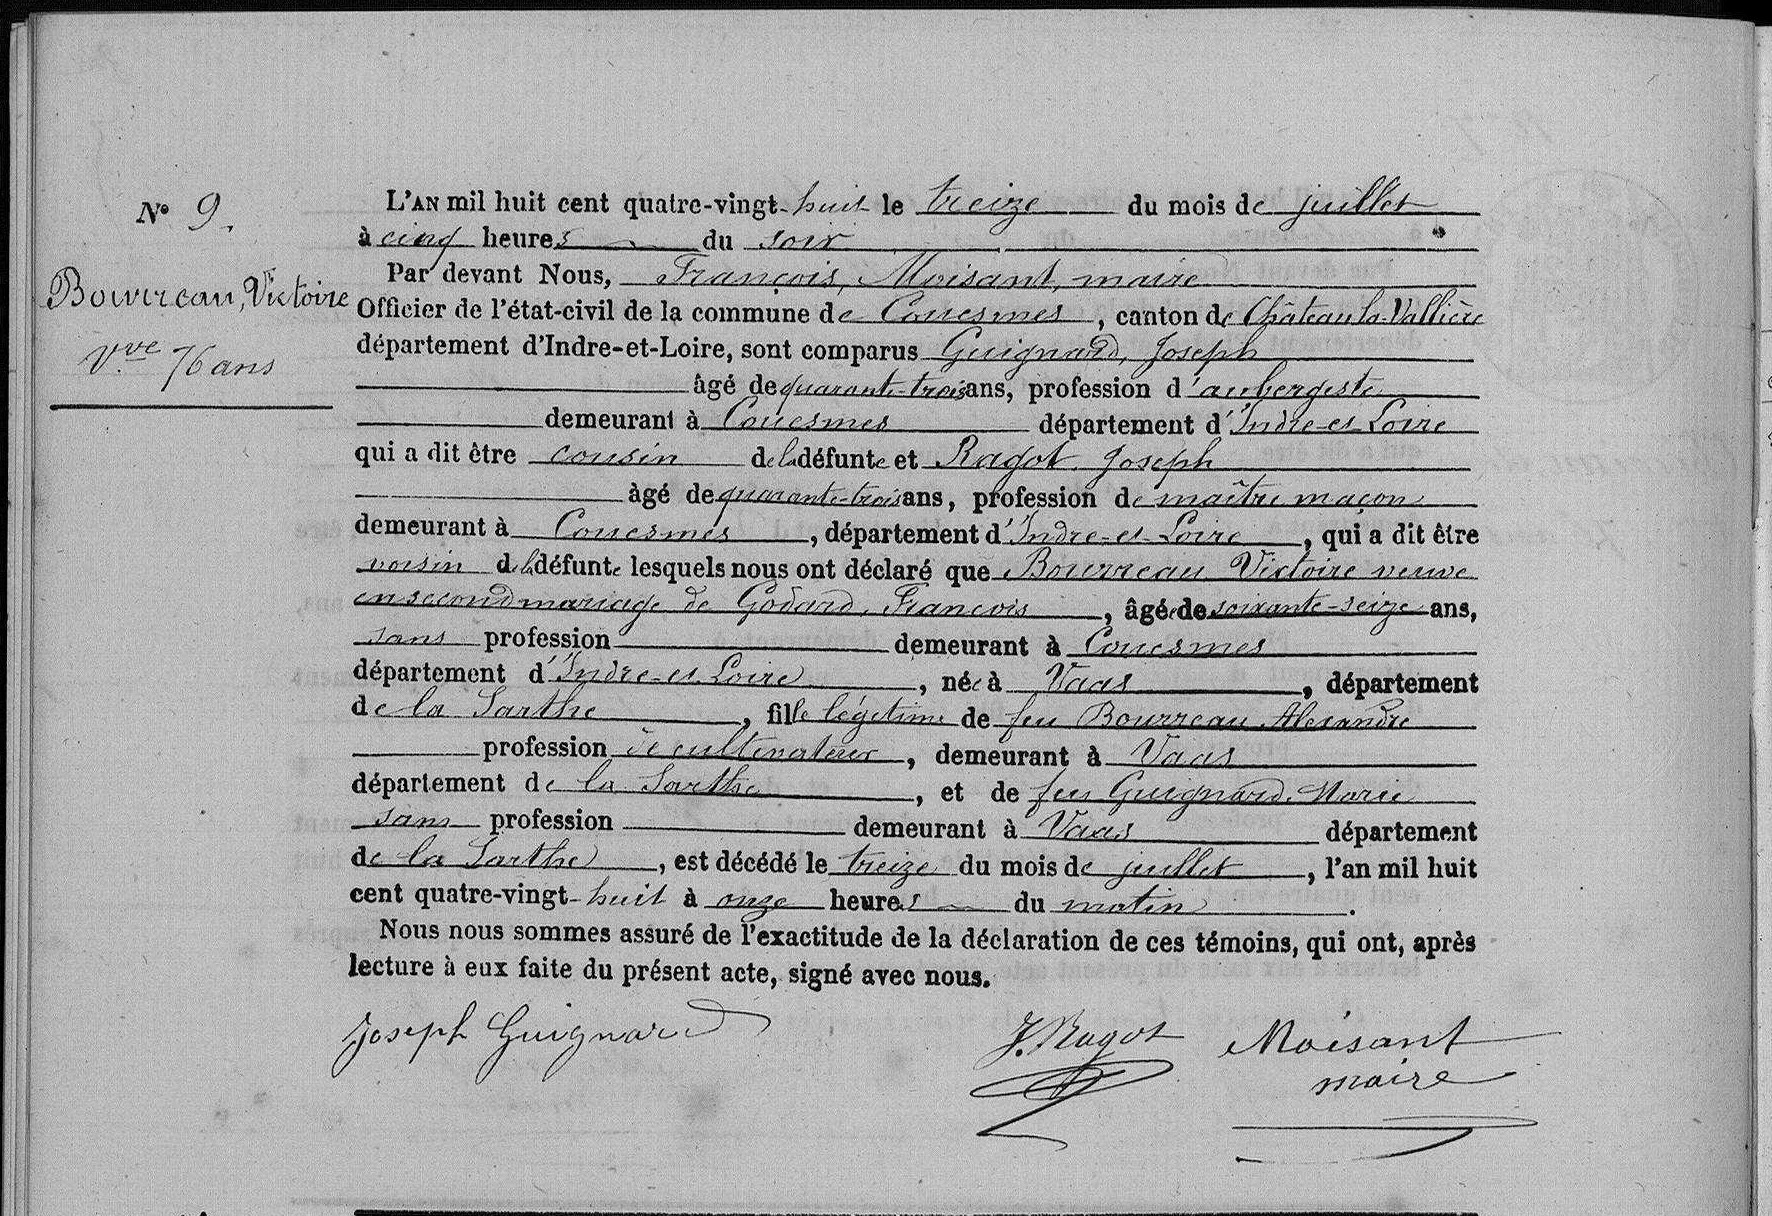 N° 9.
Bourreau, Victoire
Vve 76 ans
L'AN mil huit cent quatre-vingt-huit le treize du mois de juillet
à cinq heures du soir
Par devant Nous, François, Moisant, maire
Officier de l'état-civil de la commune de Couesmes, canton de Château la-Vallière
département d'Indre-et-Loire, sont comparus Guignard, Joseph
âgé de quarante-trois ans, profession d'aubergiste
demeurant à Couesmes département d'Indre-et-Loire
qui a dit être cousin de la défunte et Ragot Joseph
âgé de quarante-trois ans, profession de maître maçon
demeurant à Couesmes, département d'Indre-et-Loire, qui a dit être
voisin de la défunte lesquels nous ont déclaré que Bourreau Victoire veuve
en second mariage de Godard, François, âgée de soixante-seize ans,
sans profession demeurant à Couesmes
département d'Indre-et-Loire, née à Vaas, département
de la Sarthe, fille légitime de feu Bourreau Alexandre
profession de cultivateur, demeurant à Vaas
département de la Sarthe, et de feu Guignard, Marie
sans profession demeurant à Vaas département
de la Sarthe, est décédé le treize du mois de juillet, l'an mil huit
cent quatre-vingt-huit à onze heures du matin.
Nous nous sommes assuré de l'exactitude de la déclaration de ces témoins, qui ont, après
lecture à eux faite du présent acte, signé avec nous.
Joseph Guignard J. Ragot Moisant
maire